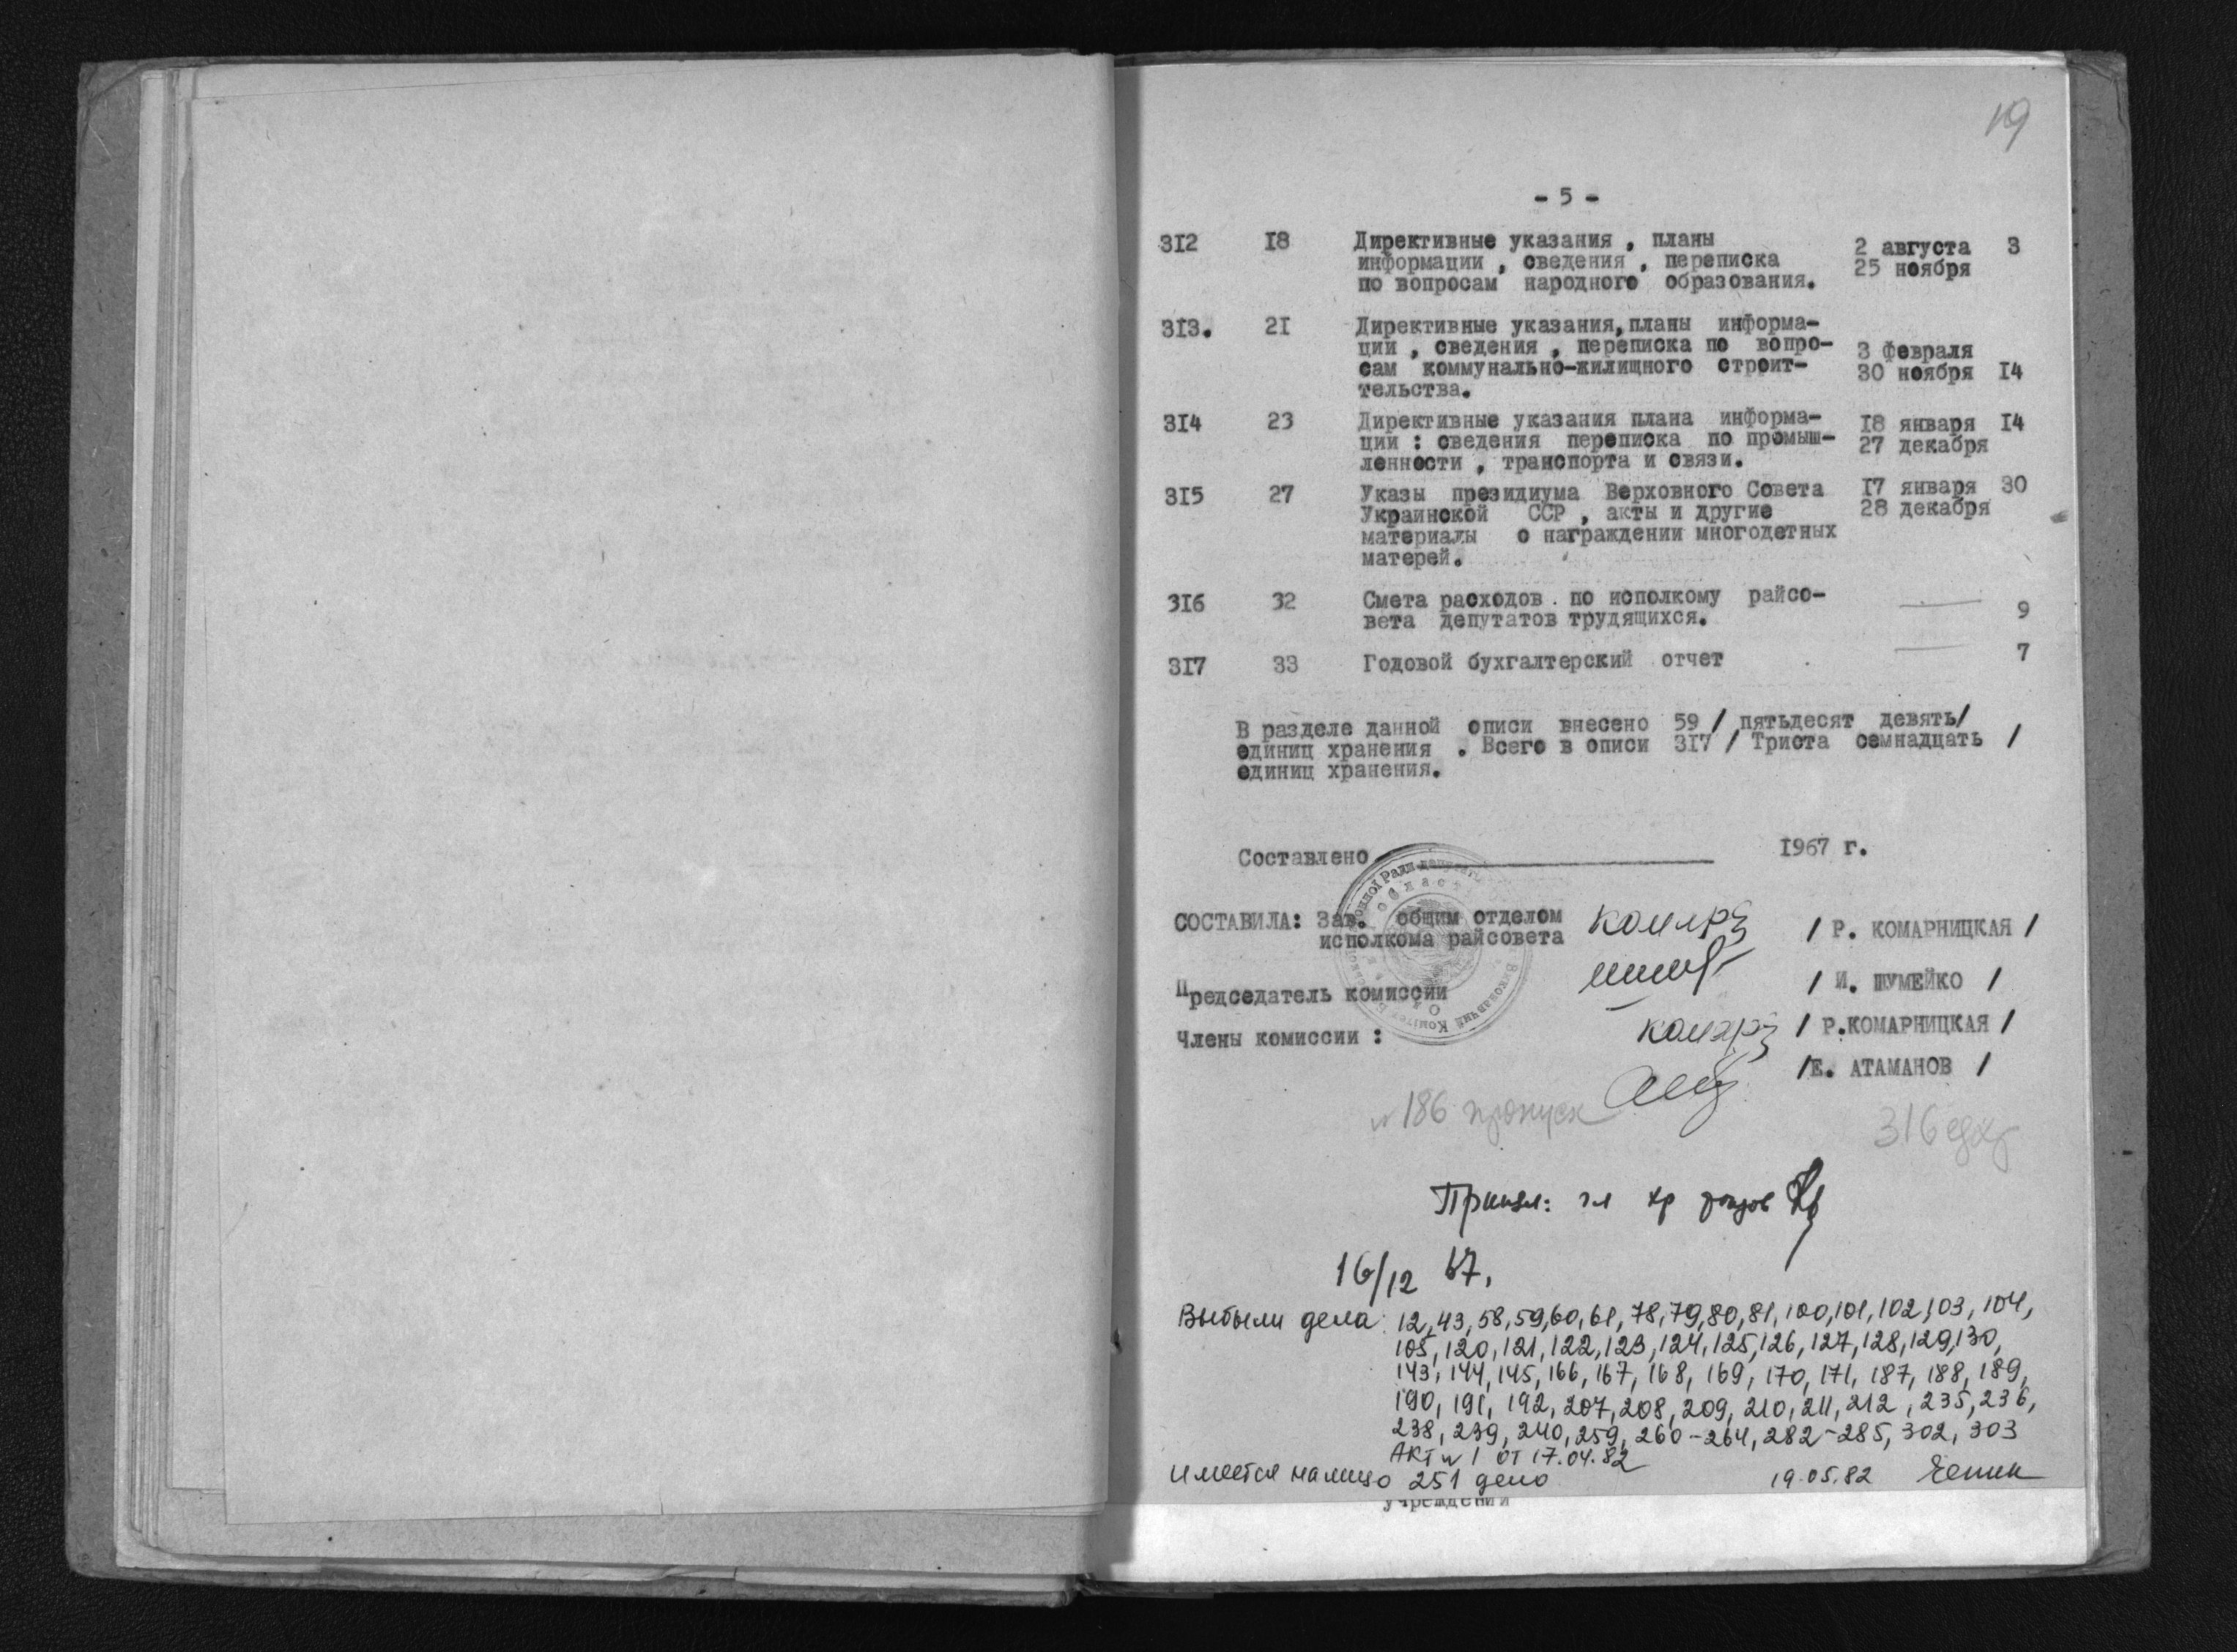 19
- 5 -
312 18 Директивные указания , планы 2 августа 3
информации , сведения , переписка 25 ноября
по вопросам народного образования.
313. 21 Директивные указания, планы информа-
ции , сведения , переписка по вопро- 3 февраля
сам коммунально-жилищного строит- 30 ноября 14
тельства.
314 23 Директивные указания плана информа- 18 января 14
ции : сведения переписка по промыш- 27 декабря
ленности , транспорта и связи.
315 27 Указы президиума Верховного Совета 17 января 30
Украинской ССР , акты и другие 28 декабря
материалы о награждении многодетных
матерей.
316 32 Смета расходов по исполкому райсо- — 9
вета депутатов трудящихся.
317 33 Годовой бухгалтерский отчет — 7
В разделе данной описи внесено 59 / пятьдесят девять/
единиц хранения . Всего в описи 317 / Триста семнадцать /
единиц хранения.
Составлено 1967 г.
СОСТАВИЛА: Зав. общим отделом / Р. КОМАРНИЦКАЯ /
исполкома райсовета
Председатель комиссии / И. ШУМЕЙКО /
Члены комиссии : / Р.КОМАРНИЦКАЯ /
/Е. АТАМАНОВ /
№ 186 пропуск
316 едхр
16/12 67.
Выбыли дела: 12, 43, 58, 59, 60, 61, 78, 79, 80, 81, 100, 101, 102, 103, 104,
105, 120, 121, 122, 123, 124, 125, 126, 127, 128, 129, 130,
143, 144, 145, 166, 167, 168, 169, 170, 171, 187, 188, 189,
190, 191, 192, 207, 208, 209, 210, 211, 212, 235, 236,
238, 239, 240, 259, 260-264, 282-285, 302, 303
Акт № 1 от 17.04.82
Имеется налицо 251 дело 19.05.82
учреждений